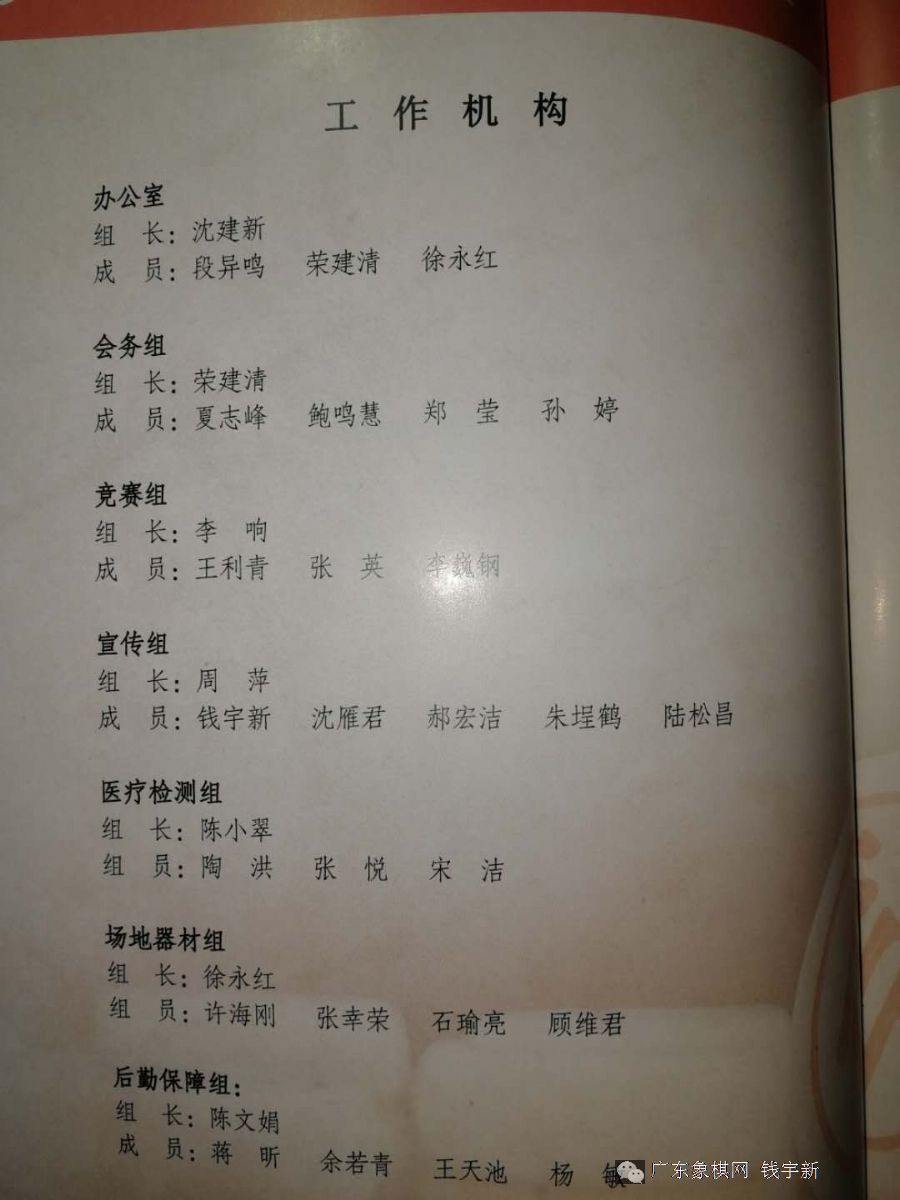 工 作 机 构
办公室
组 长：沈建新
成 员：段异鸣 荣建清 徐永红
会务组
组 长：荣建清
成 员：夏志峰 鲍鸣慧 郑 莹 孙 婷
竞赛组
组 长：李 响
成 员：王利青 张 英 李巍钢
宣传组
组 长：周 萍
成 员：钱宇新 沈雁君 郝宏洁 朱埕鹤 陆松昌
医疗检测组
组 长：陈小翠
组 员：陶 洪 张 悦 宋 洁
场地器材组
组 长：徐永红
组 员：许海刚 张幸荣 石瑜亮 顾维君
后勤保障组：
组 长：陈文娟
成 员：蒋 昕 余若青 王天池 杨 敏
广东象棋网 钱宇新